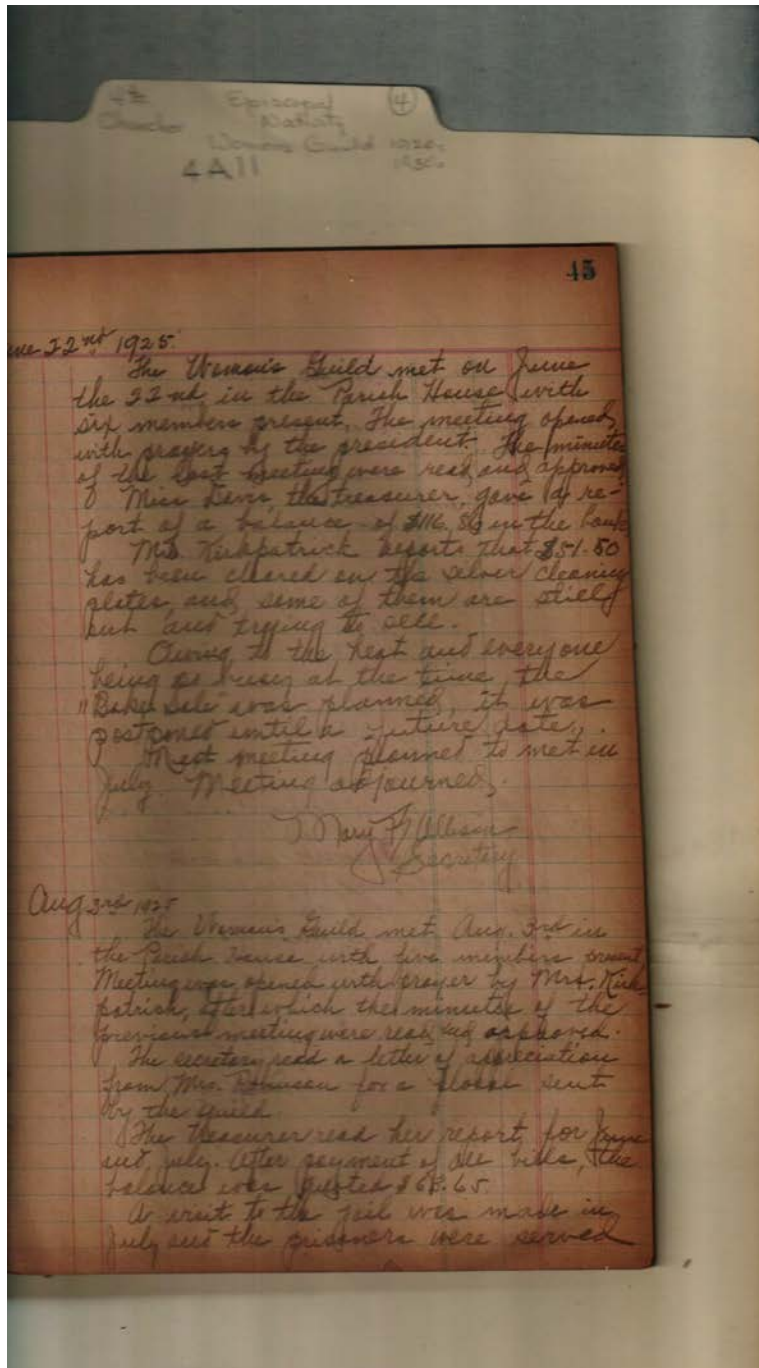 4th Episcopal 4
Church Nativity
Womans Guild 1920-
4A11 1930.
45
une 22nd 1925
The Woman's Guild met on June
the 22nd in the Parish House with
six members present. The meeting opened
with prayers by the president. The minutes
of the last meeting were read and approved
Miss Davis, the treasurer, gave a re-
port of a balance of $116. in the bank
Mrs. Kirkpatrick reports that $51.50
has been cleared on the silver cleaning
plates, and some of them are still
out and trying to sell.
Owing to the heat and everyone
being so busy at the time, the
"Bake Sale" was planned, it was
postponed until a future date.
Next meeting planned to met in
July. Meeting adjourned.
Mary F. Allison
Secretary
Aug 3rd 1925
The Woman's Guild met Aug. 3rd in
the Parish House with five members present
Meeting was opened with prayer by Mrs. Kirk-
patrick, after which the minutes of the
previous meeting were read and approved.
The secretary read a letter of appreciation
from Mrs. for a sent
by the guild.
The treasurer read her report for June
and July. After payment of all bills, the
balance was $68.65.
A visit to the jail was made in
July and the prisoners were served